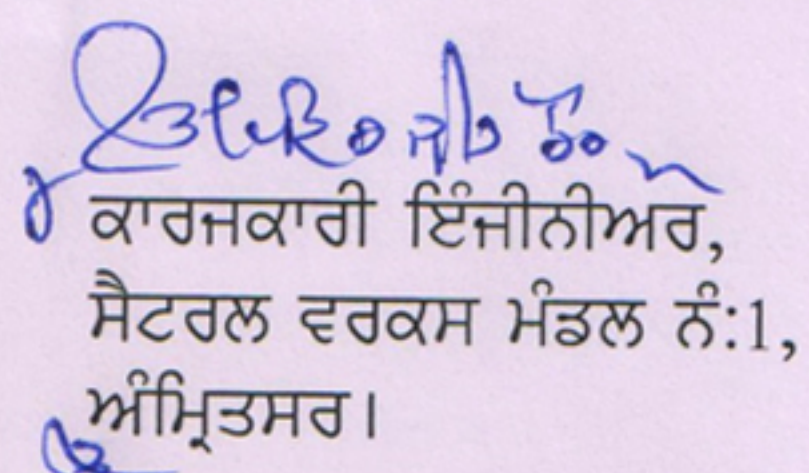 ਕਾਰਜਕਾਰੀ ਇੰਜੀਨੀਅਰ,
ਸੈਟਰਲ ਵਰਕਸ ਮੰਡਲ ਨੰ:1,
ਅੰਮ੍ਰਿਤਸਰ।